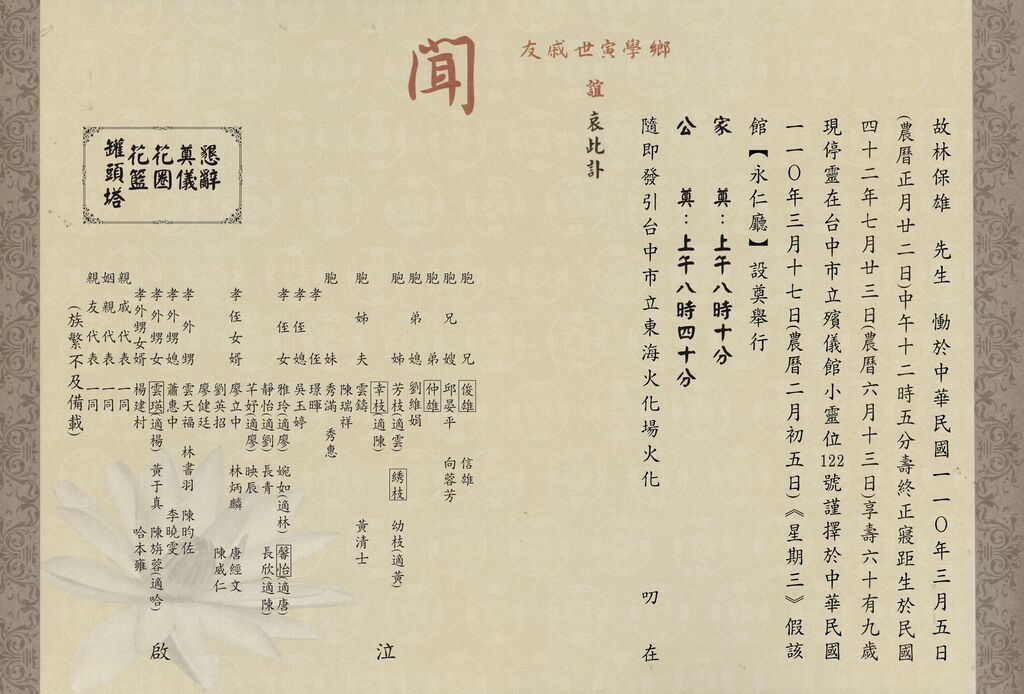 故林保雄　先生　慟於中華民國一一〇年三月五日
(農曆正月廿二日)中午十二時五分壽終正寢距生於民國
四十二年七月廿三日(農曆六月十三日)享壽六十有九歲
現停靈在台中市立殯儀館小靈位122號謹擇於中華民國
一一〇年三月十七日(農曆二月初五日)《星期三》假該
館【永仁廳】設奠舉行
家　奠：上午八時十分
公　奠：上午八時四十分
隨即發引台中市立東海火化場火化　叨　在
鄉學寅世戚友
誼　哀此訃
聞
胞兄　俊雄　信雄
胞兄嫂　邱晏平　向蓉芳
胞弟　仲雄
胞弟媳　劉維娟
胞姊　芳枝(適雲)　綉枝　幼枝(適黃)
幸枝(適陳)
胞姊夫　雲鑄　黃清士
陳瑞祥
胞妹　秀滿　秀惠
孝侄　璟暉
孝侄媳　吳玉婷
孝侄女　雅玲(適廖)　婉如(適林)　馨怡(適唐)
靜怡(適劉)　長青　長欣(適陳)
芊妤(適廖)　映辰
孝侄女婿　廖立中　林炳麟　唐經文
劉英招　陳威仁
廖健廷
孝外甥　雲天福　林書羽　陳昀佐
孝外甥媳　蕭惠中　李曉雯
孝外甥女　雲瑛(適楊)　黃于真　陳旃蓉(適哈)
孝外甥女婿　楊建村　哈本雍
親戚代表　一同
姻親代表　一同
親友代表　一同
(族繁不及備載)
泣　啟
懇辭
奠儀
花圈
花籃
罐頭塔